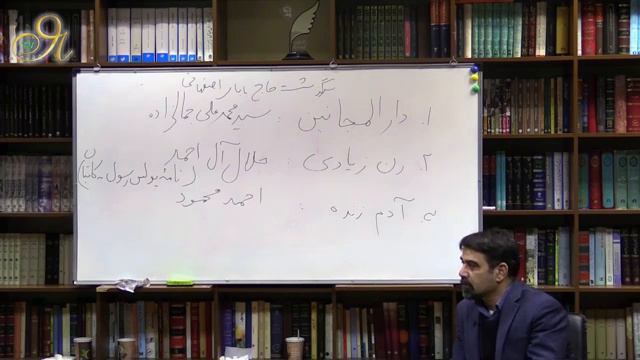 سرگذشت حاج بابای اصفهانی
۱. دارالمجانین : سید محمد علی جمالزاده
۲. زن زیادی : جلال آل احمد
(نامهٔ پولس رسول به کاتبان)
۳. آدم زنده : احمد محمود